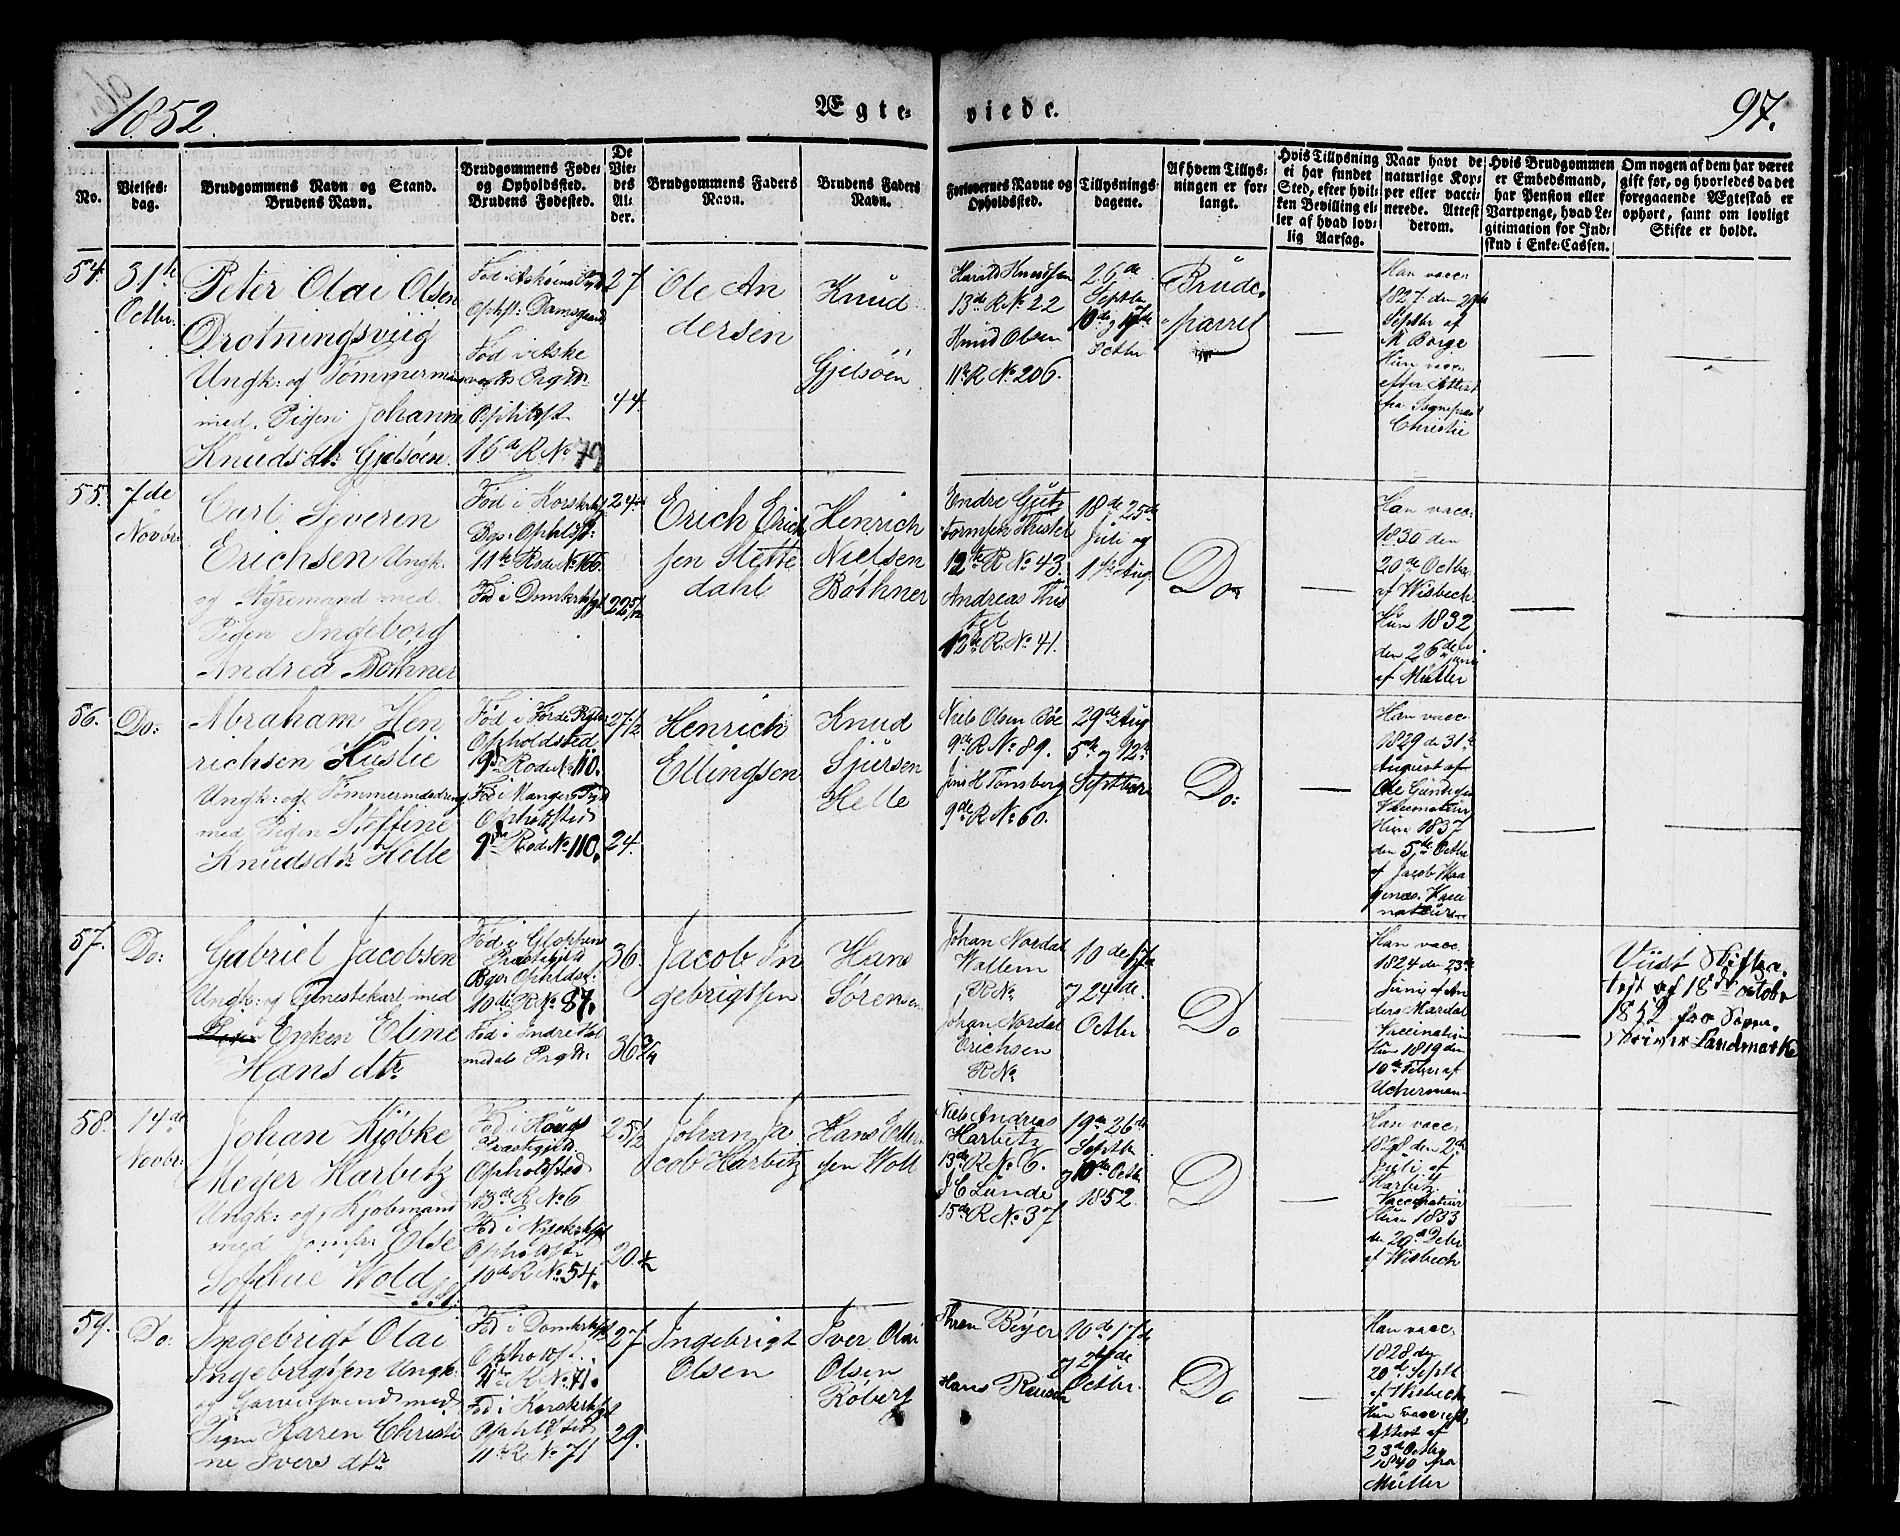 1852.
Ægte-
viede.
97.
No.
Vielses-
dag.
Brudgommens Navn og Stand.
Brudens Navn.
Brudgommens Føde-
og Opholdsted.
Brudens Fødested.
De
Vie-
des
Al-
der.
Brudgommens Faders
Navn.
Brudens Faders
Navn.
Forlovernes Navne og
Opholdsted.
Tillysnings-
dagene.
Af hvem Tillys-
ningen er for-
langt.
Hvis Tillysning
ei har fundet
Sted, efter hvil-
ken Bevilling el-
ler af hvad lov-
lig Aarsag.
Naar havt de
naturlige Kop-
per eller vacci-
nerede. Attest
derom.
Hvis Brudgommen
er Embedsmand,
har Pension eller
Vartpenge, hvad Le-
gitimation for Ind-
skud i Enke-Cassen.
Om nogen af dem har været
gift før, og hvorledes da det
foregaaende Ægteskab er
ophørt, samt om lovligt
Skifte er holdt.
54.
31te
Octbr.
Peter Olai Olsen
Drotningsviig
Ungk: og Tømmermand
med. Pigen Johanne
Knudsdtr Gjelsøen.
Fød i Askøens Pgd
Ophst: Damsgaard
Fød i Aske
volds Prgtd:
Opholdst
16de R No 79
27
44
Ole An
dersen
Knud
Gjelsøen
Harald Knudsen
13de R No 22
Knud Olsen
11te R No 206.
26de
Septbr
10de og 17de
Octbr
Brude-
parret
Han vacc:
1827 den 29de
Septbr af
M Borge
Hun vacc
efter Attest
fra Sognepræst
Christie
55.
7de
Novbr
Carl Severin
Erichsen Ungk:
og Styremand med
Pigen Ingeborg
Andrea Bøthner
Fød i Korskirkes
Bgs: Opholdst:
11te Rode No 166.
Fød i Domkirkesgd
24
22 5/12
Erich Erich
sen Stette
dahl
Henrich
Nielsen
Bøthner
Endre
12te R No 43.
Andreas This
tel
12te R No 41.
18de 25de
Juli og
1ste Aug.
Do
Han vacc:
1830 den
20de Octbr
af Wisbech
Hun 1832
den 26de
af Müller
56.
Do:
Abraham Hen
richsen Huslie
Ungk: og Tømmermdsdreng
med Pigen Steffine
Knudsdtr Helle
Fød i Førde Pgtd
Opholdsted
9de Rode No 110.
Fød i Manger Pgd
Opholdsted
9de Rode No 110.
27 1/2
24.
Henrich
Ellingsen
Knud
Sjursen
Helle
Niels Olsen Bøe
9de R No 89.
Jens H Tønsberg
9de R No 60.
29de Aug
5te og 12te
Septbr
Do:
Han vacc
1829 de 31te
August af
Ole Gundersen
Vaccinatør
Hun 1837
den 5te Octbr
af Jacob Waa
genæs. Vacci
natøur
57.
Do:
Gabriel Jacobsen
Ungk: og Tjenestekarl med
Enken Eline
Hans dtr
Fød i Gloppens
Præstegjeld
Bgs: Opholdst:
10de R No 87.
Fød i Indre Hol
medals Prgtd:
36.
36 3/4
Jacob In
gebrigtsen
Hans
Sørensen
Johan Nordal
Wollem
R No
Johan Nordal
Erichsen
R No
10de 17de
og 24de
Octbr
Do
Han vacc
1824 den 23de
Juni af An
ders Mardal
Vaccinatør
Hun 1819 den
10de Febr af
Uchermann
Viist Skifte-
test af 18de October
1852 fra Soren-
skriver Landmark
58.
14de
Novbr
Johan Kjøbke
Meyer Harbitz
Ungk: og Kjøbmand
med Jomfr Else
Sophie Wold
Fød i Hougs
Præstegjeld
Opholdsted
13de R No 6
Fød i Nykirkesgd
Opholdst
10de R No 54.
25 1/2
20 1/2
Johan Ja
cob Harbitz
Hans Eller
sen Wold
Niels Andreas
Harbitz
13de R No 6.
J C Lunde
15de R No 37
19de 26de
Septbr
og 10de Octbr
1852.
Do
Han vacc:
1828 den 2de
Juli af
Harbitz
Vaccinatør
Hun 1833
de 29de Octbr
af Wisbech
59.
Do:
Ingebrigt Olai
Ingebrigtsen Ungk:
og Garversvend med
Pigen Karen Christi
ne Ivers dtr
Fød i Domkirkesgd
Opholdst.
11te R No 71.
Fød i Korskirkesgd
Opholdsted
11te R No 71
27
29.
Ingebrigt
Olsen
Iver Olai
Olsen
Røberg
Thren Beyer
Hans Reusch
10de 17de
og 24de
Octbr.
Do
Han vacc:
1828 den
20de Septbr
af Wisbech
Hun vacc: eft.
Attest af
23de Octbr
1840 fra
Müller